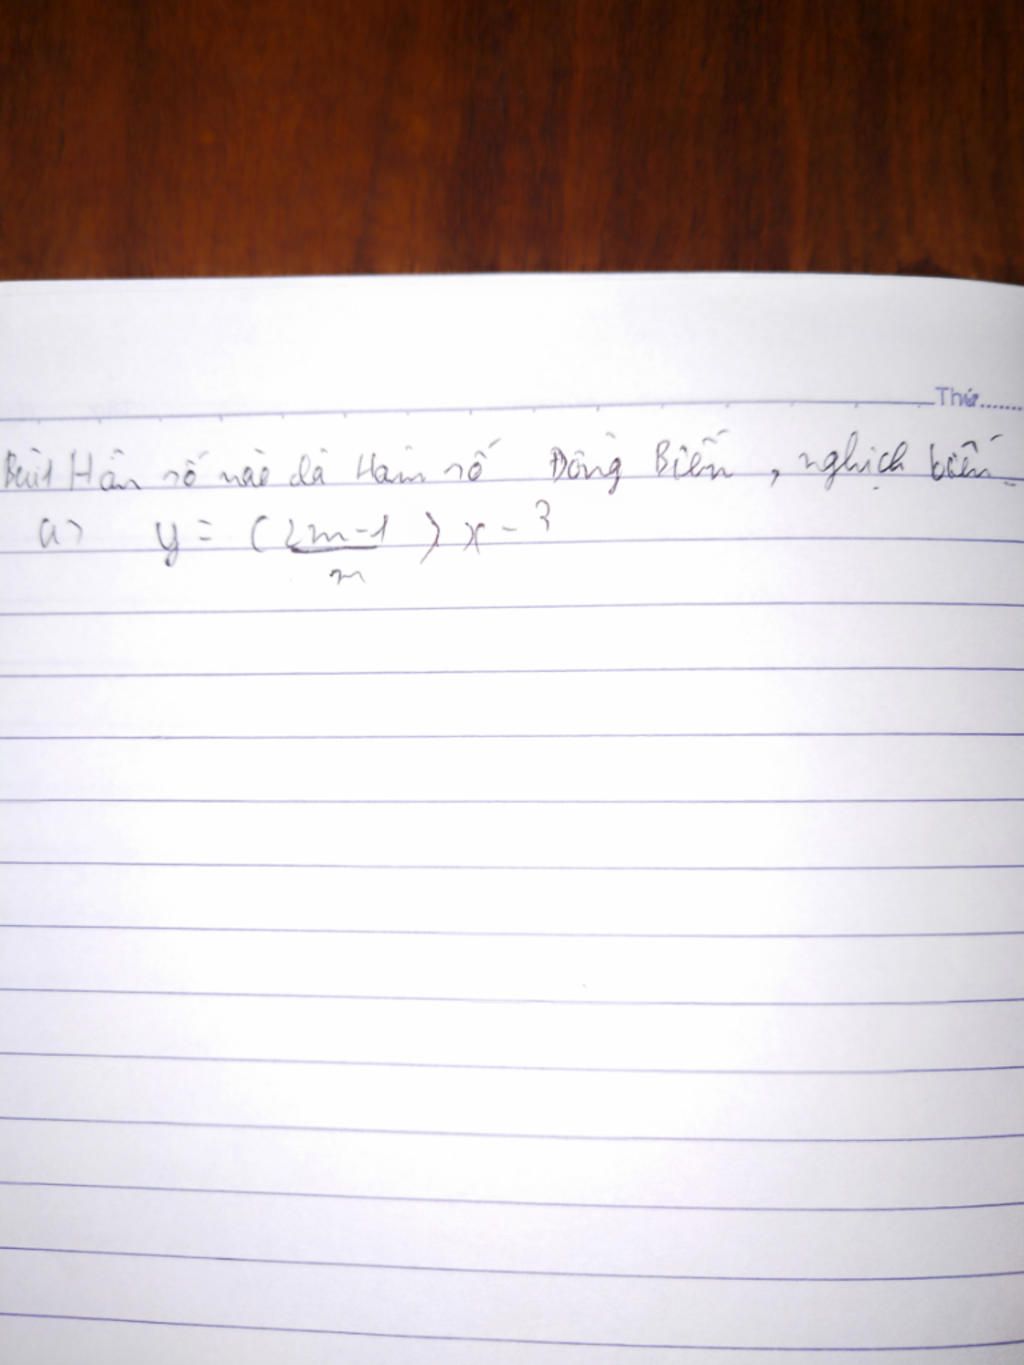 Thứ........
Bài 1 Hàm số nào là Hàm số Đồng Biến, nghịch biến
a) y = (2m-1/m) x - 3